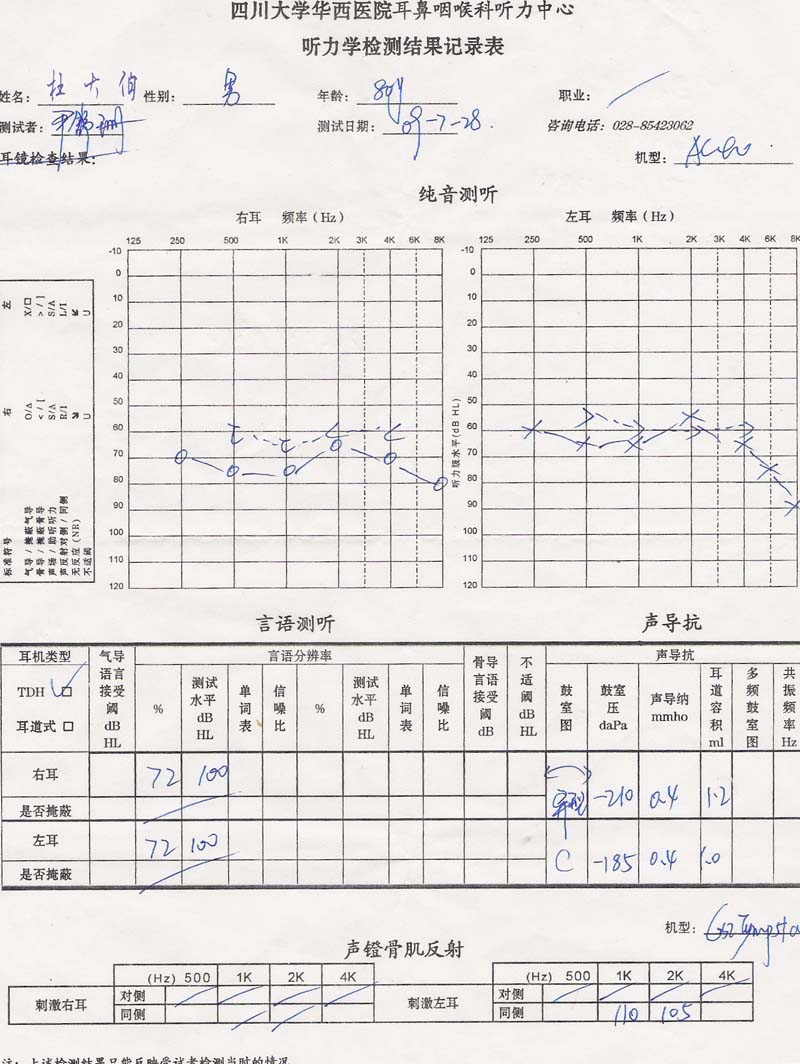 四川大学华西医院耳鼻咽喉科听力中心
听力学检测结果记录表
姓名: 杜大伯 性别: 男 年龄: 80y 职业:
测试者: 测试日期: 09-7-28. 咨询电话: 028-85423062
耳镜检查结果: 机型:
纯音测听
右耳 频率(Hz) 左耳 频率(Hz)
125 250 500 1K 2K 3K 4K 6K 8K 125 250 500 1K 2K 3K 4K 6K 8K
-10 -10
0 0
10 10
20 20
30 30
40 40
50 50
60 60
70 70
80 80
90 90
100 100
110 110
120 120
听力级水平(dB HL)
标准符号 右 左
气导/掩蔽气导 O/Δ X/□
骨导/掩蔽骨导 </[ >/]
声场/助听听力 S/A S/A
声反射对侧/同侧 R/I L/I
无反应(NR) ↙ ↘
不适阈 U U
言语测听 声导抗
耳机类型 气导言语接受阈 dB HL 言语分辨率 骨导言语接受阈 dB 不适阈 dB HL 声导抗
TDH □ % 测试水平 dB HL 单词表 信噪比 % 测试水平 dB HL 单词表 信噪比 鼓室图 鼓室压 daPa 声导纳 mmho 耳道容积 ml 多频鼓室图 共振频率 Hz
耳道式 □
右耳 72 100 异型 -210 0.4 1.2
是否掩蔽
左耳 72 100 C -185 0.4 1.0
是否掩蔽
机型:
声镫骨肌反射
(Hz) 500 1K 2K 4K (Hz) 500 1K 2K 4K
刺激右耳 对侧 刺激左耳 对侧
同侧 同侧 110 105
注: 上述检测结果只能反映受试者检测当时的情况